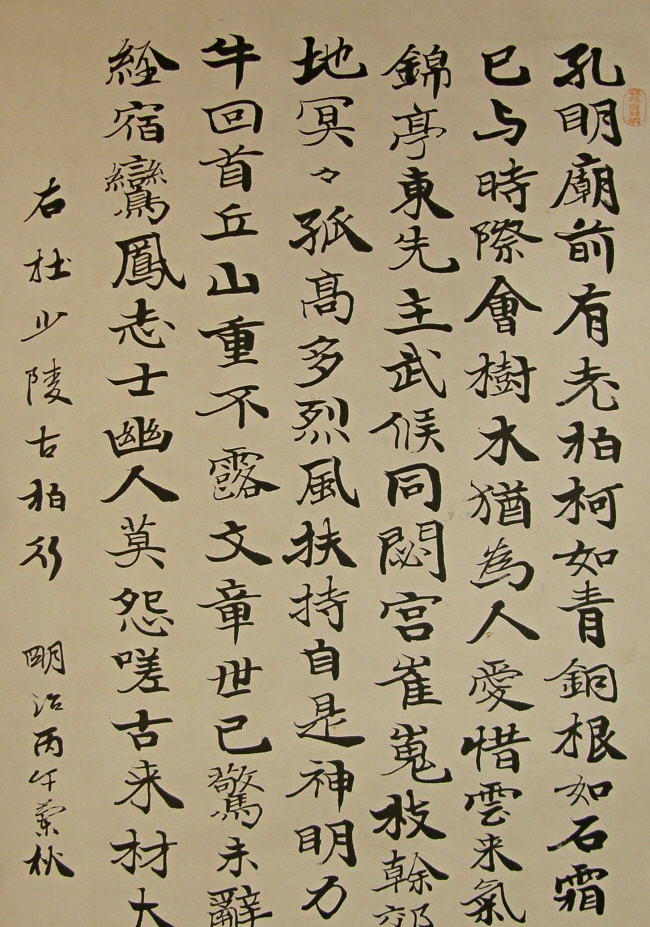 孔明廟前有老柏柯如青銅根如石霜
已与時際會樹木猶為人愛惜雲来氣
錦亭東先主武侯同閟宮崔嵬枝幹郊
地冥々孤高多烈風扶持自是神明力
牛回首丘山重不露文章世已驚未辭
経宿鸞鳳志士幽人莫怨嗟古来材大
右杜少陵古柏行 明治丙午蘭秋